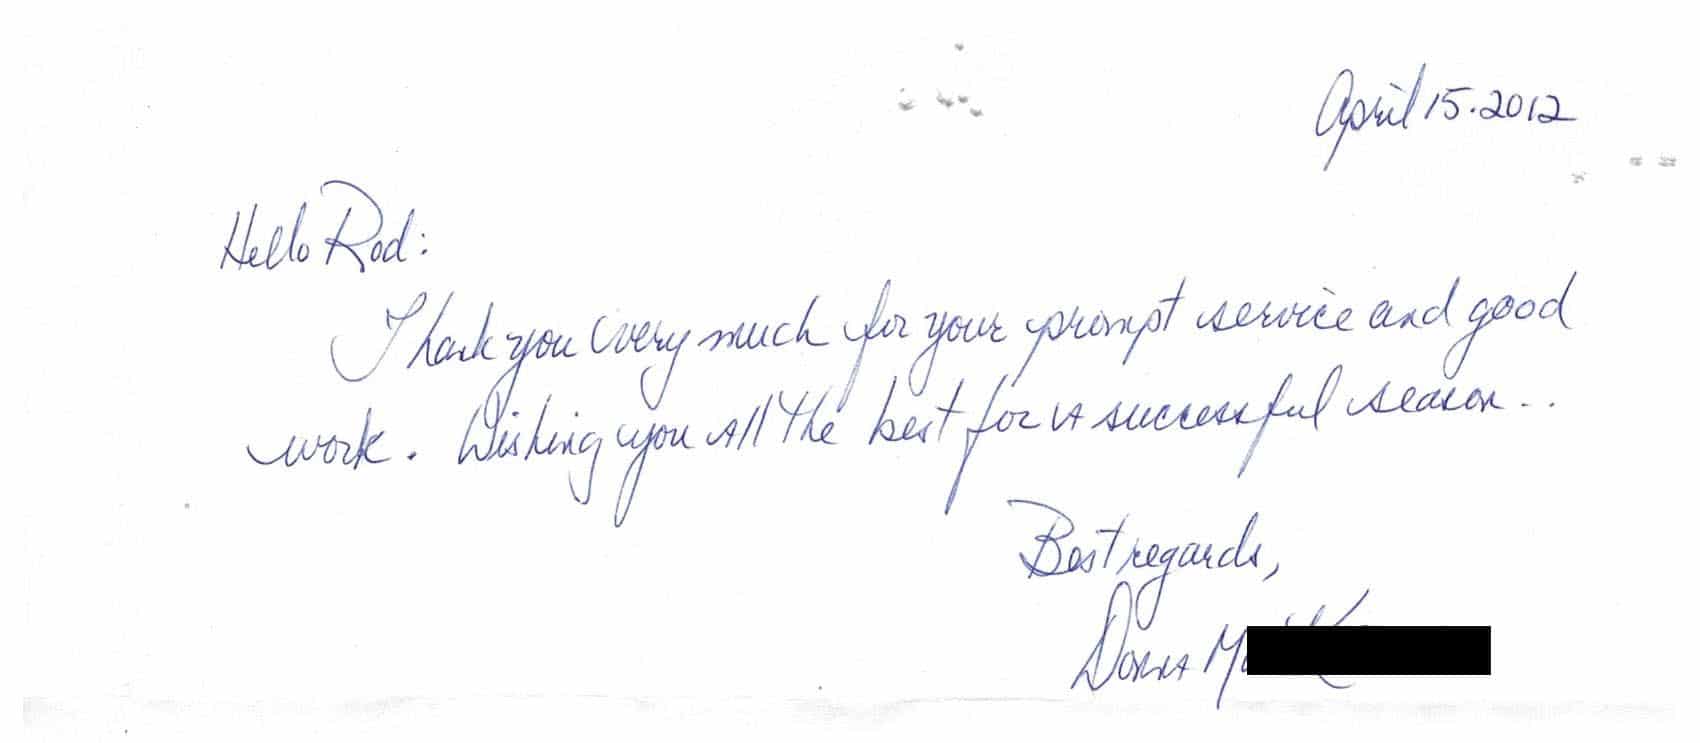 April 15.2012
Hello Rod:
Thank you very much for your prompt service and good
work. Wishing you all the best for a successful season..
Best regards,
Donna M